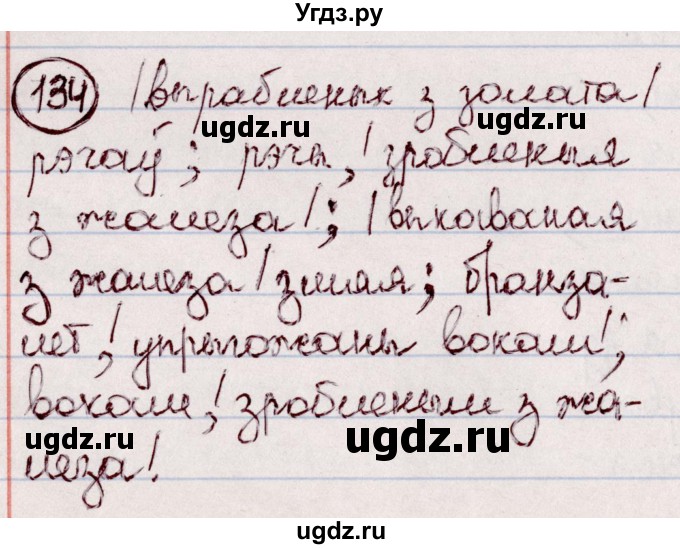 Угдз.ру
134 /вырабленых з золата/
рэчаў; рэчы, /зробленыя
з жалеза/; /выкаваная
з жалеза/ змяя; бранза-
лет, /упрыгожаны вокам/;
вокам, /зробленым з жа-
леза/.
ugdz.ru
ugdz.ru
ugdz.ru
ugdz.ru
ugdz.ru
ugdz.ru
ugdz.ru
ugdz.ru
ugdz.ru